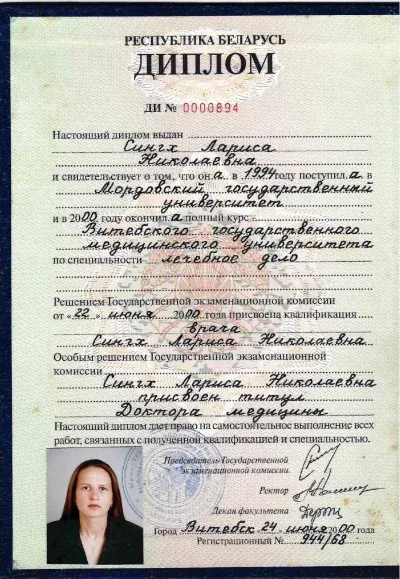 РЕСПУБЛИКА БЕЛАРУСЬ
ДИПЛОМ
ДИ № 0000894
Настоящий диплом выдан
Сингх Лариса
Николаевна
и свидетельствует о том, что он а в 1994 году поступил а в
Мордовский государственный
университет
и в 2000 году окончил а полный курс
Витебского государственного
медицинского университета
по специальности лечебное дело
Решением Государственной экзаменационной комиссии
от «22» июня 2000 года присвоена квалификация
врача
Сингх Лариса Николаевна
Особым решением Государственной экзаменационной
комиссии
Сингх Лариса Николаевна
присвоен титул
Доктора медицины
Настоящий диплом дает право на самостоятельное выполнение всех
работ, связанных с полученной квалификацией и специальностью.
Председатель Государственной
экзаменационной комиссии
Ректор
Декан факультета
Город Витебск 24 июня 2000 года
Регистрационный № 944/68